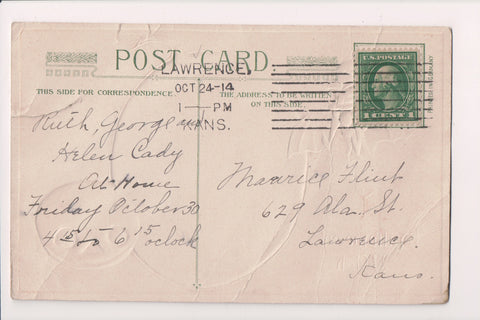 POST CARD
THIS SIDE FOR CORRESPONDENCE
THE ADDRESS TO BE WRITTEN
ON THIS SIDE
LAWRENCE,
OCT 24-14
1 - PM
KANS.
U.S. POSTAGE
Ruth, George and
Helen Cady
At Home
Friday October 30
4 15 to 6 15 oclock
Maurice Flint
629 Ala. St.
Lawrence.
Kans.